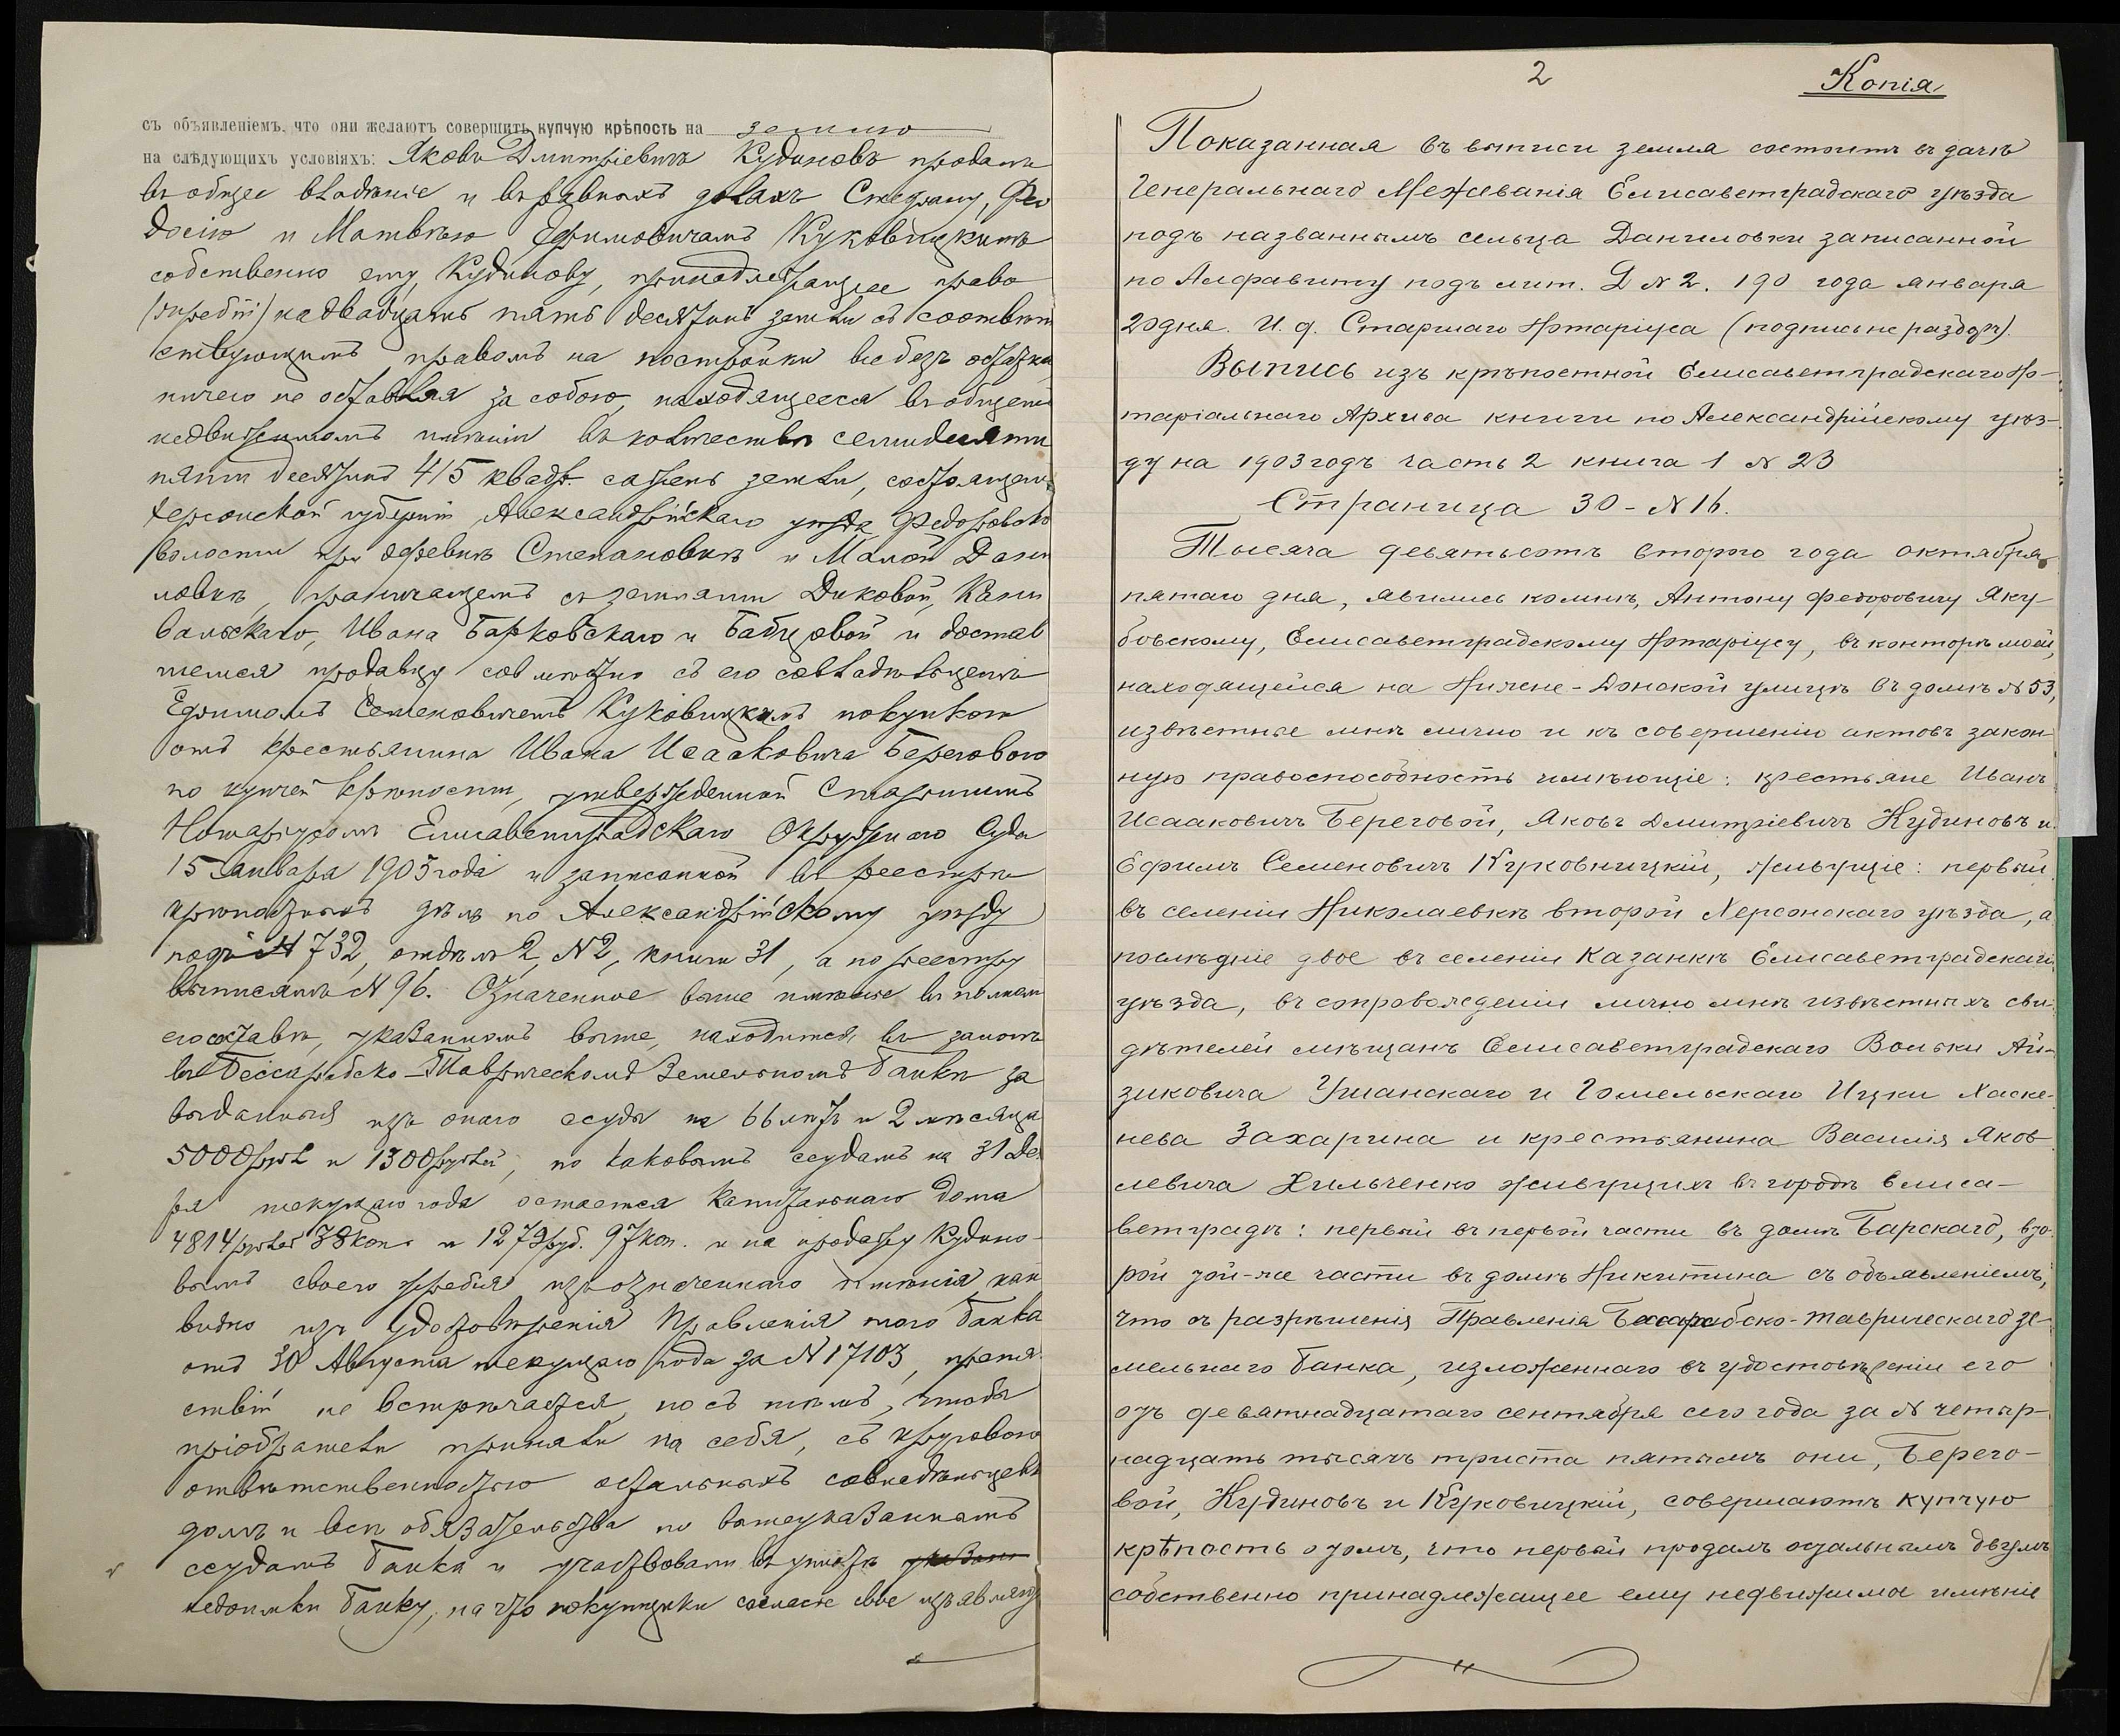 съ объявленіемъ, что они желаютъ совершить купчую крѣпость на землю
на слѣдующихъ условіяхъ: Яковъ Дмитріевичъ Кудиновъ продалъ
въ общее владѣніе и въ равныхъ доляхъ Стефану, Фео
досію и Матвѣю Ефимовичамъ Куковицкимъ
собственно ему, Кудинову, принадлежащее право
(жребій) на двадцать пять десятинъ земли съ соотвѣт
ствующимъ правомъ на постройки все безъ остатка
ничего не оставляя за собою, находящееся въ общемъ
недвижимомъ имѣніи въ количествѣ семидесяти
пяти десятинъ 415 квадр. сажень земли, состоящемъ
Херсонской губерніи Александрійскаго уѣзда Федоровской
волости при деревнѣ Степановкѣ и Малой Дани
ловкѣ, граничащемъ съ землями Диковой, Кани
вальскаго, Ивана Барковскаго и Бабцовой и достав
шемся продавцу совмѣстно съ его совладѣльцемъ
Ефимомъ Семеновичемъ Куковицкимъ покупкою
отъ крестьянина Ивана Исааковича Берегового
по купчей крѣпости, утвержденной Старшимъ
Нотаріусомъ Елисаветградскаго Окружнаго Суда
15 Января 1903 года и записанной въ реестрѣ
крѣпостныхъ дѣлъ по Александрійскому уѣзду
подъ N 732, отдѣлъ 2, N 2, книги 31, а по реестру
выписямъ N 96. Означенное выше имѣніе въ полномъ
его составѣ, указанномъ выше, находится въ залогѣ
въ Бессарабско-Таврическомъ Земельномъ Банкѣ за
выданныя изъ онаго ссуды на 66 лѣтъ и 2 мѣсяца
5000 руб. и 1300 рублей, по каковымъ ссудамъ на 31 Де
ря текущаго года остается капитальнаго долга
4814 рублей 38 коп. и 1279 руб. 97 коп. и на продажу Кудино-
вымъ своего жребія изъ означеннаго имѣнія, какъ
видно изъ удостовѣренія Правленія того Банка
отъ 30 Августа текущаго года за N 17103, препят
ствій не встрѣчается, но съ тѣмъ, чтобы
пріобрѣтатели приняли на себя, съ круговою
отвѣтственностью остальныхъ совладѣльцевъ
долгъ и всѣ обязательства по вышеуказаннымъ
ссудамъ Банка и участвовали въ уплатѣ
недоимки Банку, на что покупщики согласіе свое изъявляютъ
2
Копія
Показанная въ выписи земля состоитъ въ дачѣ
Генеральнаго Межеванія Елисаветградскаго уѣзда
подъ названнымъ сельца Даниловки записанной
по Алфавиту подъ лит. Д N 2. 190 года января
20 дня. И. д. Старшаго Нотаріуса (подпись не разбор).
Выпись изъ крѣпостной Елисаветградскаго Но-
таріальнаго Архива книги по Александрійскому уѣз-
ду на 1903 годъ часть 2 книга 1 N 23
Страница 30 - N 16.
Тысяча девятьсотъ второго года октября
пятаго дня, явились ко мнѣ, Антону Федоровичу Яку-
бовскому, Елисаветградскому Нотаріусу, въ конторѣ моей,
находящейся на Нижне-Донской улицѣ въ домѣ N 53,
извѣстные мнѣ лично и къ совершенію актовъ закон
ную правоспособность имѣющіе: крестьяне Иванъ
Исааковичъ Береговой, Яковъ Дмитріевичъ Кудиновъ и
Ефимъ Семеновичъ Куковницкій, живущіе: первый
въ селеніи Николаевкѣ второй Херсонскаго уѣзда, а
послѣдніе двое въ селеніи Казанкѣ Елисаветградскаго
уѣзда, въ сопровожденіи лично мнѣ извѣстныхъ сви-
дѣтелей мѣщанъ Елисаветградскаго Вольки Ай-
зиковича Уманскаго и Гомельскаго Ицки Хаске-
лева Захарина и крестьянина Василія Яков
левича Хильченко живущихъ въ городѣ Елиса-
ветградѣ: первый въ первой части въ домѣ Барскаго, вто-
рой той-же части въ домѣ Никитина съ объявленіемъ,
что съ разрѣшенія Правленія Бессарабско-Таврическаго зе-
мельнаго банка, изложеннаго въ удостовѣреніи его
отъ девятнадцатаго сентября сего года за N четыр-
надцать тысячъ триста пятымъ они, Берего-
вой, Кудиновъ и Куковицкій, совершаютъ купчую
крѣпость о томъ, что первый продалъ остальнымъ двумъ
собственно принадлежащее ему недвижимое имѣніе